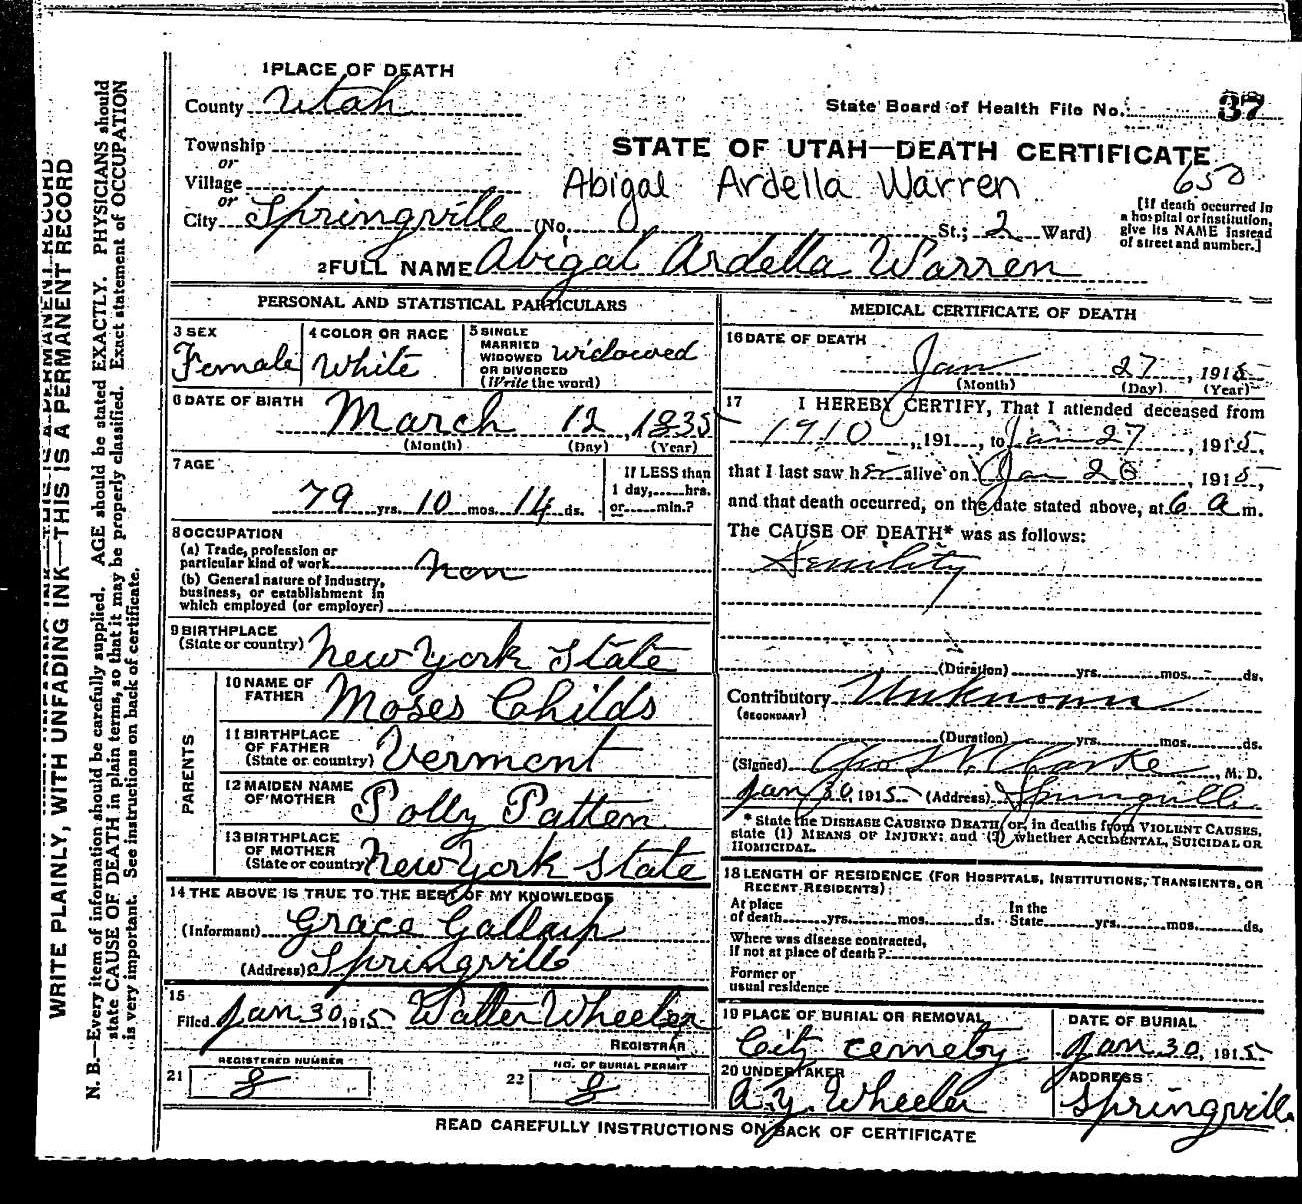 1 PLACE OF DEATH
County Utah
State Board of Health File No. 37
Township
or
Village
or
City Springville (No. St.; 2 Ward)
STATE OF UTAH—DEATH CERTIFICATE
650
Abigal Ardella Warren
[If death occurred in
a hospital or institution,
give its NAME instead
of street and number.]
2 FULL NAME Abigal Ardella Warren
PERSONAL AND STATISTICAL PARTICULARS
3 SEX
Female
4 COLOR OR RACE
White
5 SINGLE
MARRIED
WIDOWED
OR DIVORCED
(Write the word)
widowed
6 DATE OF BIRTH
March 12, 1835
(Month) (Day) (Year)
7 AGE
79 yrs. 10 mos. 14 ds.
If LESS than
1 day,.....hrs.
or.....min.?
8 OCCUPATION
(a) Trade, profession or
particular kind of work non
(b) General nature of Industry,
business, or establishment in
which employed (or employer)
9 BIRTHPLACE
(State or country) New York State
PARENTS
10 NAME OF
FATHER Moses Childs
11 BIRTHPLACE
OF FATHER
(State or country) Vermont
12 MAIDEN NAME
OF MOTHER Polly Patten
13 BIRTHPLACE
OF MOTHER
(State or country) New York State
14 THE ABOVE IS TRUE TO THE BEST OF MY KNOWLEDGE
(Informant) Grace Gallup
(Address) Springville
15
Filed Jan 30 1915 Walter Wheeler
REGISTRAR
21 REGISTERED NUMBER
8
22 NO. OF BURIAL PERMIT
8
MEDICAL CERTIFICATE OF DEATH
16 DATE OF DEATH
Jan 27, 1915
(Month) (Day) (Year)
17 I HEREBY CERTIFY, That I attended deceased from
1910, 191...., to Jan 27, 1915,
that I last saw her alive on Jan 26, 1915,
and that death occurred, on the date stated above, at 6 a m.
The CAUSE OF DEATH* was as follows:
Senility
(Duration) yrs. mos. ds.
Contributory Unknown
(SECONDARY)
(Duration) yrs. mos. ds.
(Signed) Geo W. Clarke, M. D.
Jan 30, 1915 (Address) Springville
* State the DISEASE CAUSING DEATH or, in deaths from VIOLENT CAUSES,
state (1) MEANS OF INJURY; and (2) whether ACCIDENTAL, SUICIDAL OR
HOMICIDAL.
18 LENGTH OF RESIDENCE (FOR HOSPITALS, INSTITUTIONS, TRANSIENTS, OR
RECENT RESIDENTS)
At place
of death yrs. mos. ds.
In the
State yrs. mos. ds.
Where was disease contracted,
if not at place of death?
Former or
usual residence
19 PLACE OF BURIAL OR REMOVAL
City cemetery
DATE OF BURIAL
Jan 30, 1915
20 UNDERTAKER
A. Y. Wheeler
ADDRESS
Springville
READ CAREFULLY INSTRUCTIONS ON BACK OF CERTIFICATE
WRITE PLAINLY, WITH UNFADING INK—THIS IS A PERMANENT RECORD
N. B.—Every item of information should be carefully supplied. AGE should be stated EXACTLY. PHYSICIANS should
state CAUSE OF DEATH in plain terms, so that it may be properly classified. Exact statement of OCCUPATION
is very important. See instructions on back of certificate.